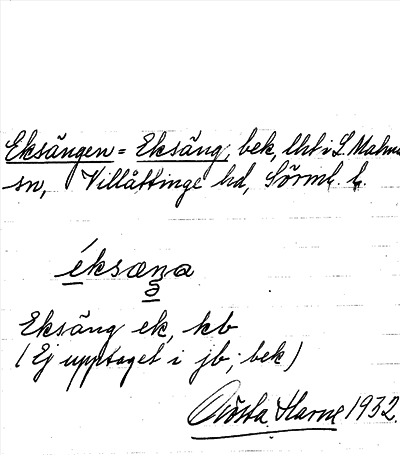 Eksängen = Eksäng, bek, lht i L. Malms
sn, Villåttinge hd, Sörml. l.
éksæŋa
Eksäng ek, kb
(Ej upptaget i jb; bek)
Gösta Harne 1932.